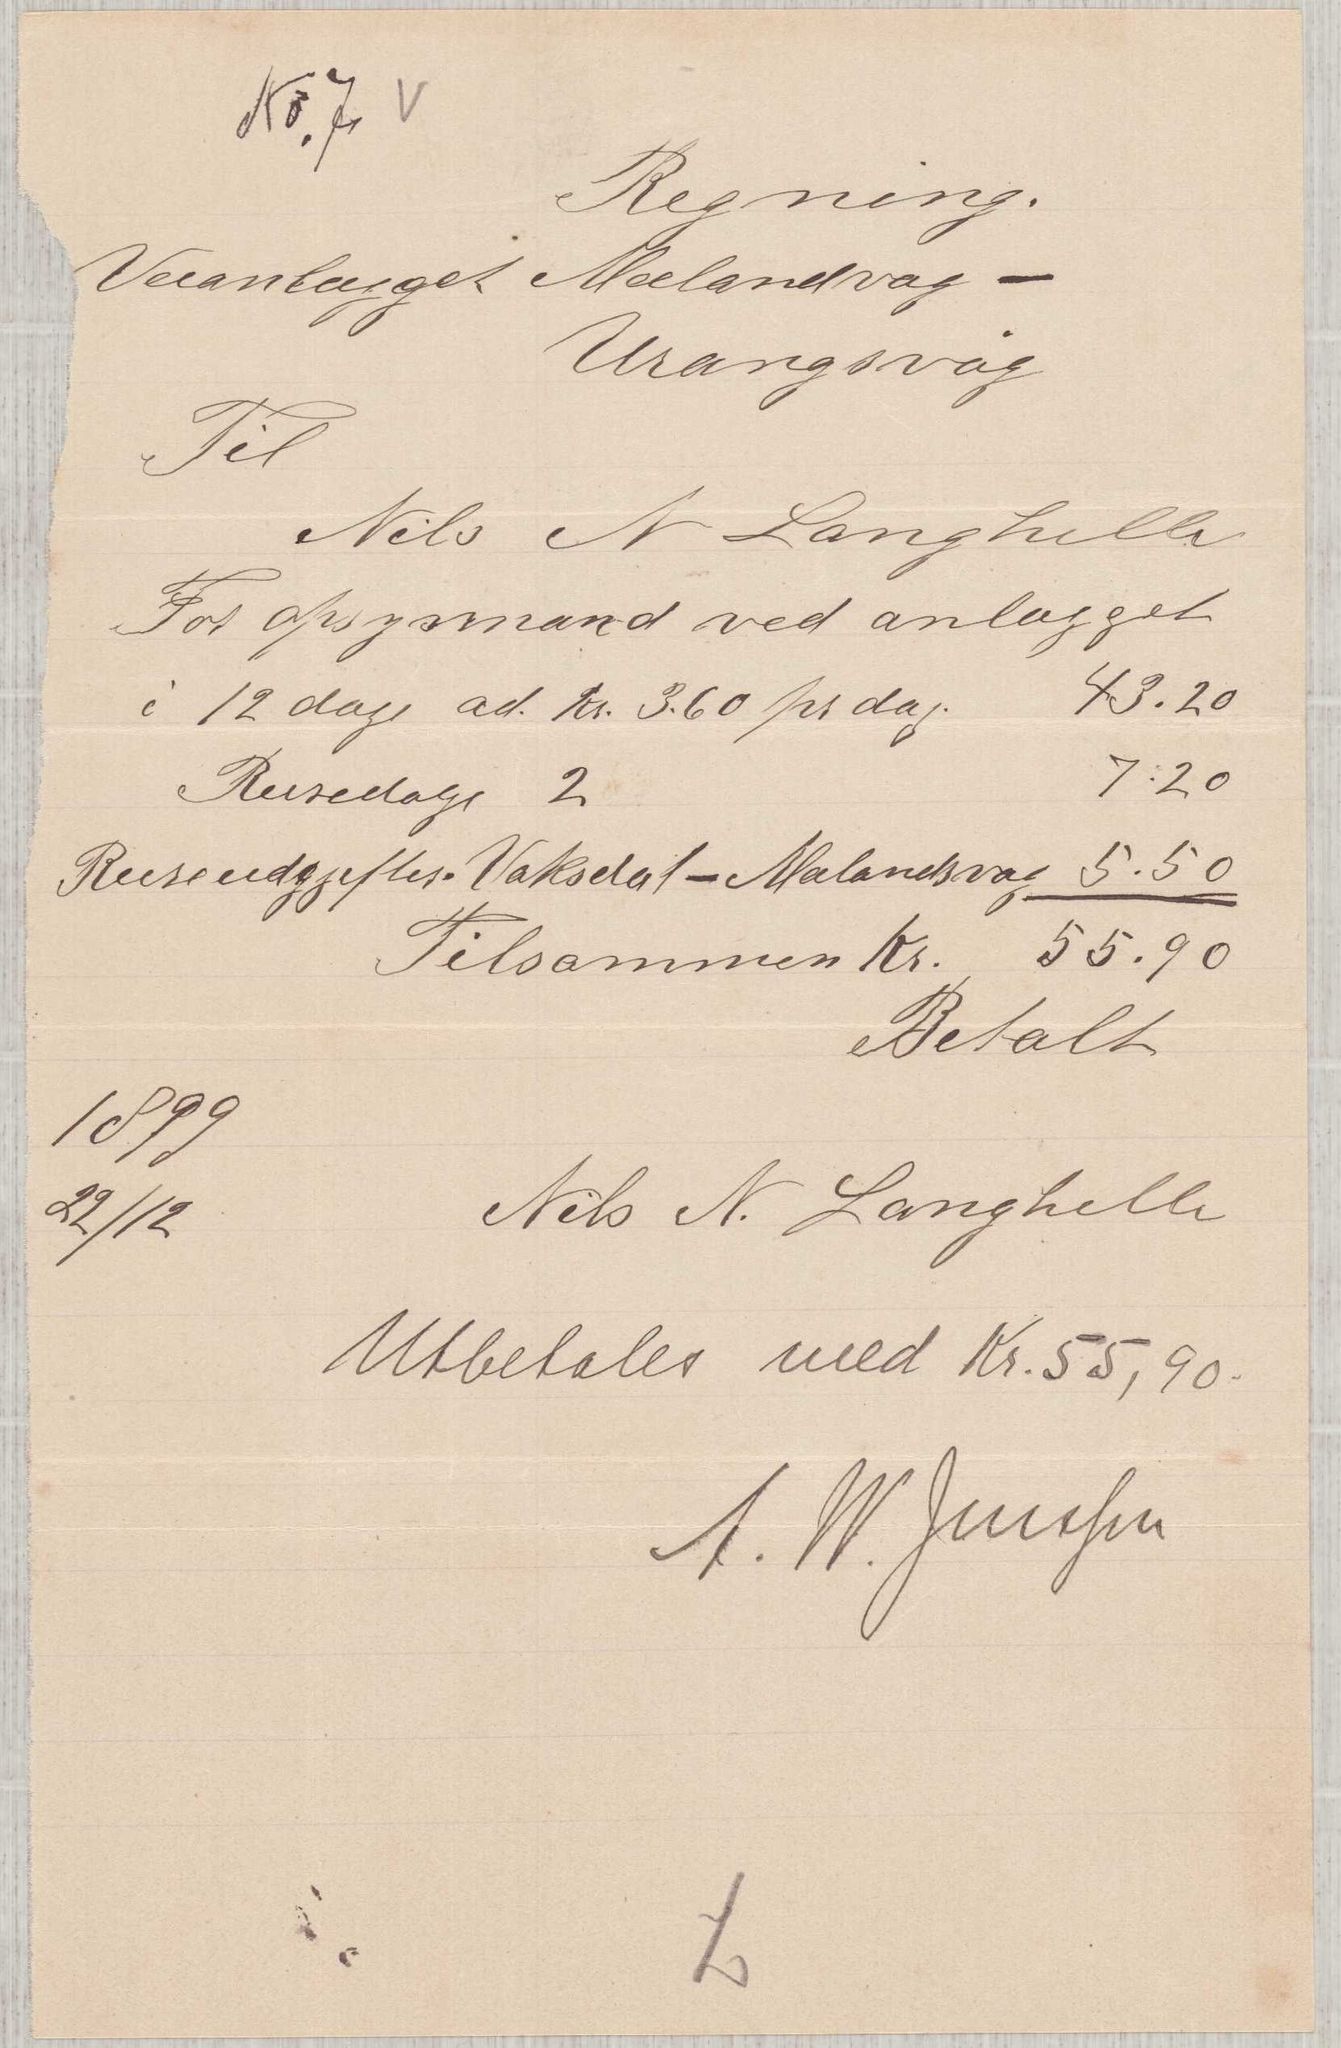 No. 7. V
Regning.
Veianlægget Mælandvag –
Urangsvåg
Til
Nils N Langhelle
For opsynmand ved anlægget
i 12 dage ad. Kr. 3.60 pr dag. 43.20
Reisedage 2 7.20
Reiseudgjefter. Vaksdal – Mælandsvag 5.50
Tilsammen Kr. 55.90
Betalt
1899
22/12
Nils N. Langhelle
Utbetales med Kr. 55,90.
A. W. Jenssen